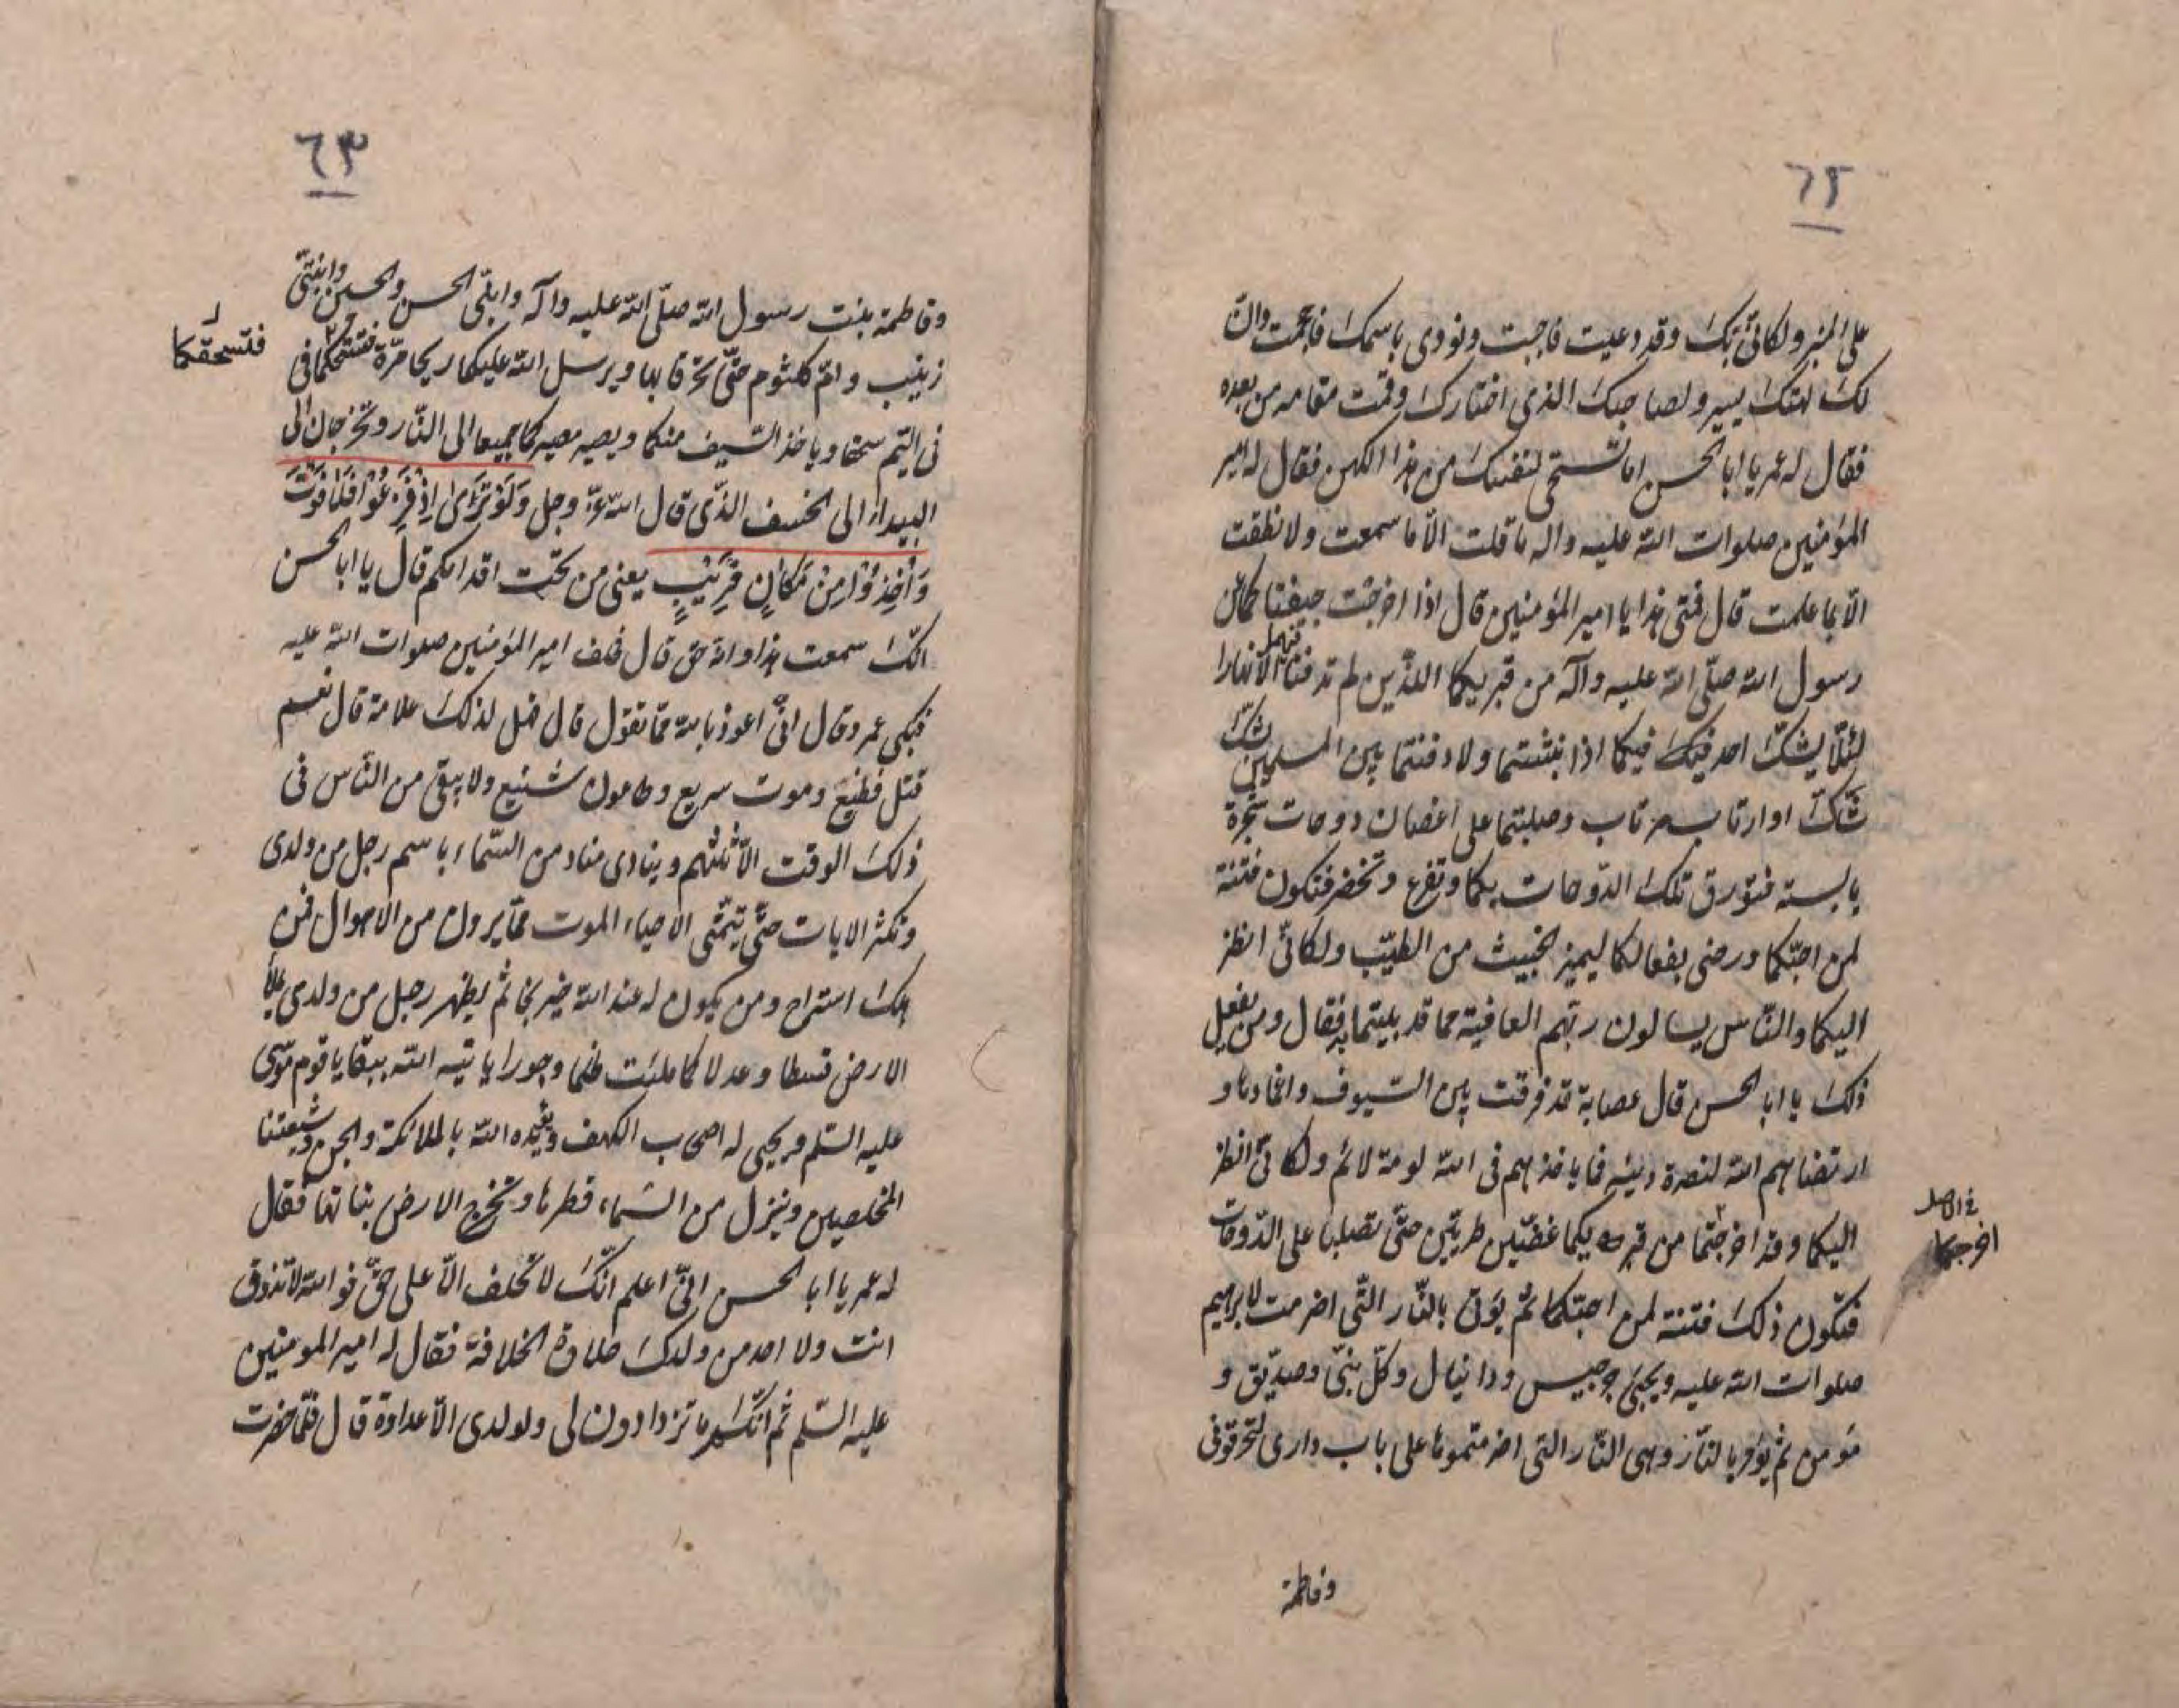 ٦٢
على المنبر ولكانّى بك وقد دعيت فاجبت ونودى باسمك فاحجمت وانّ
لك لهتك يسير ولصاحبك الذى اختارك وقمت مقامه من بعده
فقال له عمر يا ابا الحسن اما تستحى لنفسك من هذا الكهن فقال له امير
المؤمنين صلوات الله عليه واله ما قلت الّا ما سمعت ولا نطقت
الّا بما علمت قال فمتى هذا يا امير المؤمنين قال اذا اخرجت جيفتاكما عن
رسول الله صلّى الله عليه وآله من قبريكما اللذين لم تدفنا فيهما الّا نهارا
لئلّا يشكّ احد فيك فيكما اذا نبشتما ولا دفنتما بين المسلمين لشك
شكّ او ارتاب مرتاب وصلبتما على اغصان دوحات شجرة
يابسة فتورق تلك الدّوحات بكما وتفرع وتخضر فتكون فتنة
لمن احبّكما ورضى بفعالكما ليميز الخبيث من الطيّب ولكانّى انظر
اليكما والنّاس يسالون ربّهم العافية مما قد بليتما به فقال ومن يفعل
ذلك يا ابا الحسن قال عصابة قد فرقت بين السّيوف واغمادها و
ارتضاهم الله لنصرة دينه فما ياخذهم فى الله لومة لائم ولكانّى انظر
اليكما وقد اخرجتما من قبريكما غضّين طريّين حتّى تصلبا على الدّوحات
فتكون ذلك فتنة لمن احبّكما ثم يؤتى بالنّار التّى اضرمت لابرهيم
صلوات الله عليه ويحيى جرجيس ودانيال وكلّ نبىّ وصدّيق و
مؤمن ثم يؤمر بالنّار وهى النّار التى اضرمتموها على باب دارى لتحرقونى
فى الاصل
اخرجكما
وفاطمة
٦٣
وفاطمة بنت رسول الله صلّى الله عليه وآله وابنّى الحسن والحسين وابنتىّ
زينب وامّ كلثوم حتّى تحرقا بها ويرسل الله عليكما ريحا مرّة فى
فى اليّم سحقا وياخذ السّيف منكما ويصير مصيركما جميعا الى النّار وتخرجان الى
البيداء الى الخسف الذّى قال الله عزّ وجل وَلَوْ تَرَى اِذْ فَزِعُوْا فَلَا فَوْتَ
وَاُخِذُوْا مِنْ مَكَانٍ قَرِيْبٍ يعنى من تحت اقدامكم قال يا ابا الحسن
انّك سمعت هذا وانه حق قال فحلف امير المؤمنين صلوات الله عليه
فبكى عمر وقال انّى اعوذ بالله ممّا تقول قال فهل لذلك علامة قال نعم
قتل فظيع وموت سريع وطاعون شنيع ولا يبقى من النّاس فى
ذلك الوقت الّا ثلثهم وينادى مناد من السّماء باسم رجل من ولدى
وتكثر الايات حتّى يتمّنى الاحياء الموت ممّا يرون من الاهوال فمن
هلك استراح ومن يكون له عند الله خير نجا ثم يظهر رجل من ولدى يملأ
الارض قسطا وعدلا كما ملئت ظلما وجورا ياتيه الله ببقايا قوم موسى
عليه السّلم ويحيى له اصحاب الكهف ويؤيّده الله بالملائكة والجن وشيعتنا
المخلصين وينزل من السّماء قطرها وتخرج الارض نباتها فقال
له عمر يا ابا الحسن انّى اعلم انّك لا تحلف الّا على حقّ فو الله لا تذوق
انت ولا احد من ولدك حلاوة الخلافة فقال له امير المومنين
عليه السّلم ثم انّكم ما تزدادون لى ولولدى الّا عداوة قال فلمّا حضرت
فتسحقكما